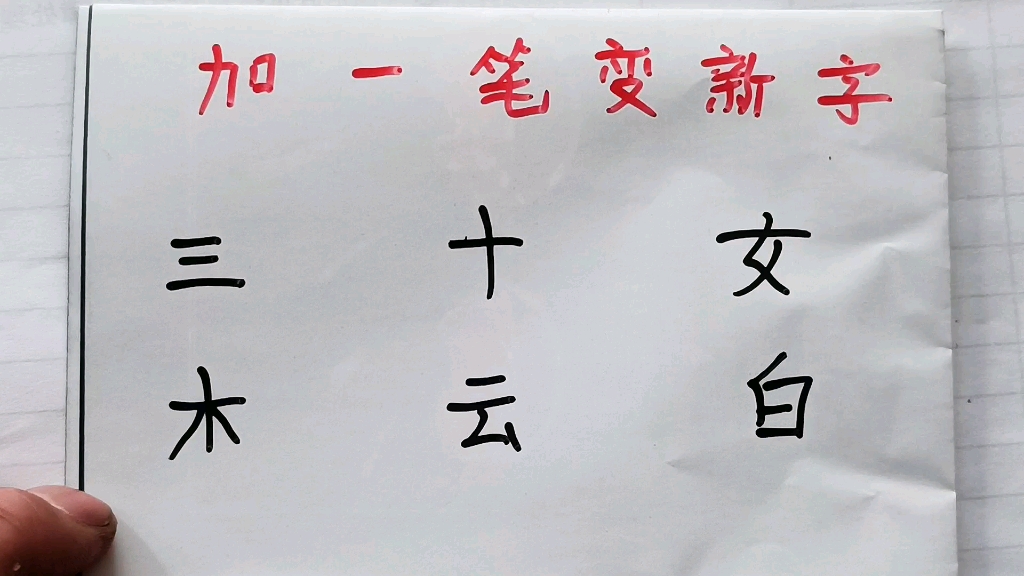 加一笔变新字
三 十 女
木 云 白